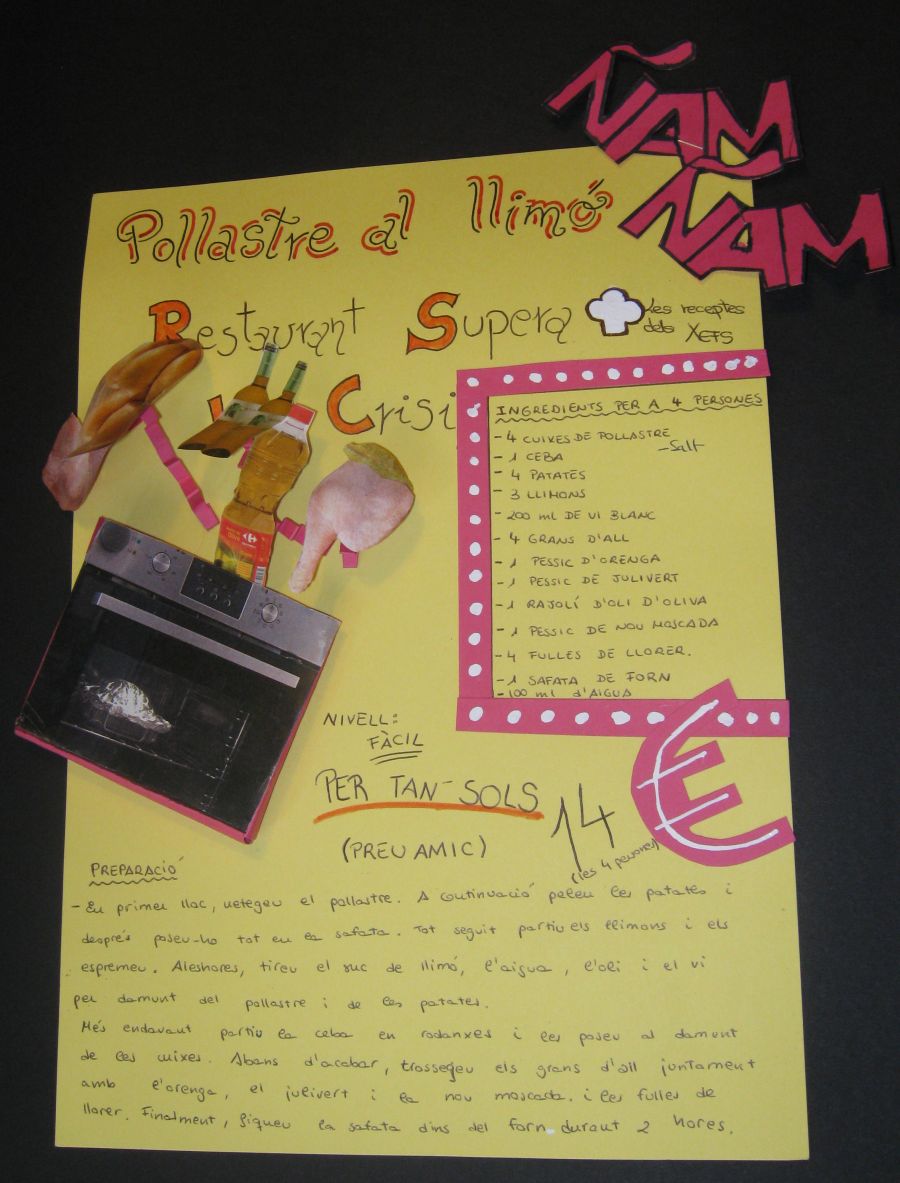 ÑAM
ÑAM
Pollastre al llimó
Restaurant Supera
Les receptes
dels Xefs
Crisi
INGREDIENTS PER A 4 PERSONES
- 4 CUIXES DE POLLASTRE
- Salt
- 1 CEBA
- 4 PATATES
- 3 LLIMONS
- 200 ml DE VI BLANC
- 4 GRANS D'ALL
- 1 PESSIC D'ORENGA
- 1 PESSIC DE JULIVERT
- 1 RAJOLÍ D'OLI D'OLIVA
- 1 PESSIC DE NOU MOSCADA
- 4 FULLES DE LLORER.
- 1 SAFATA DE FORN
- 100 ml d'AIGUA
NIVELL:
FÀCIL
PER TAN-SOLS
14 €
(PREU AMIC)
(les 4 persones)
PREPARACIÓ
- En primer lloc, netegeu el pollastre. A continuació peleu les patates i
després poseu-ho tot en la safata. Tot seguit partiu els llimons i els
espremeu. Aleshores, tireu el suc de llimó, l'aigua, l'oli i el vi
per damunt del pollastre i de les patates.
Més endavant partiu la ceba en rodanxes i les poseu al damunt
de les cuixes. Abans d'acabar, trossegeu els grans d'all juntament
amb l'orenga, el julivert i la nou moscada. i les fulles de
llorer. Finalment, fiqueu la safata dins del forn durant 2 hores.